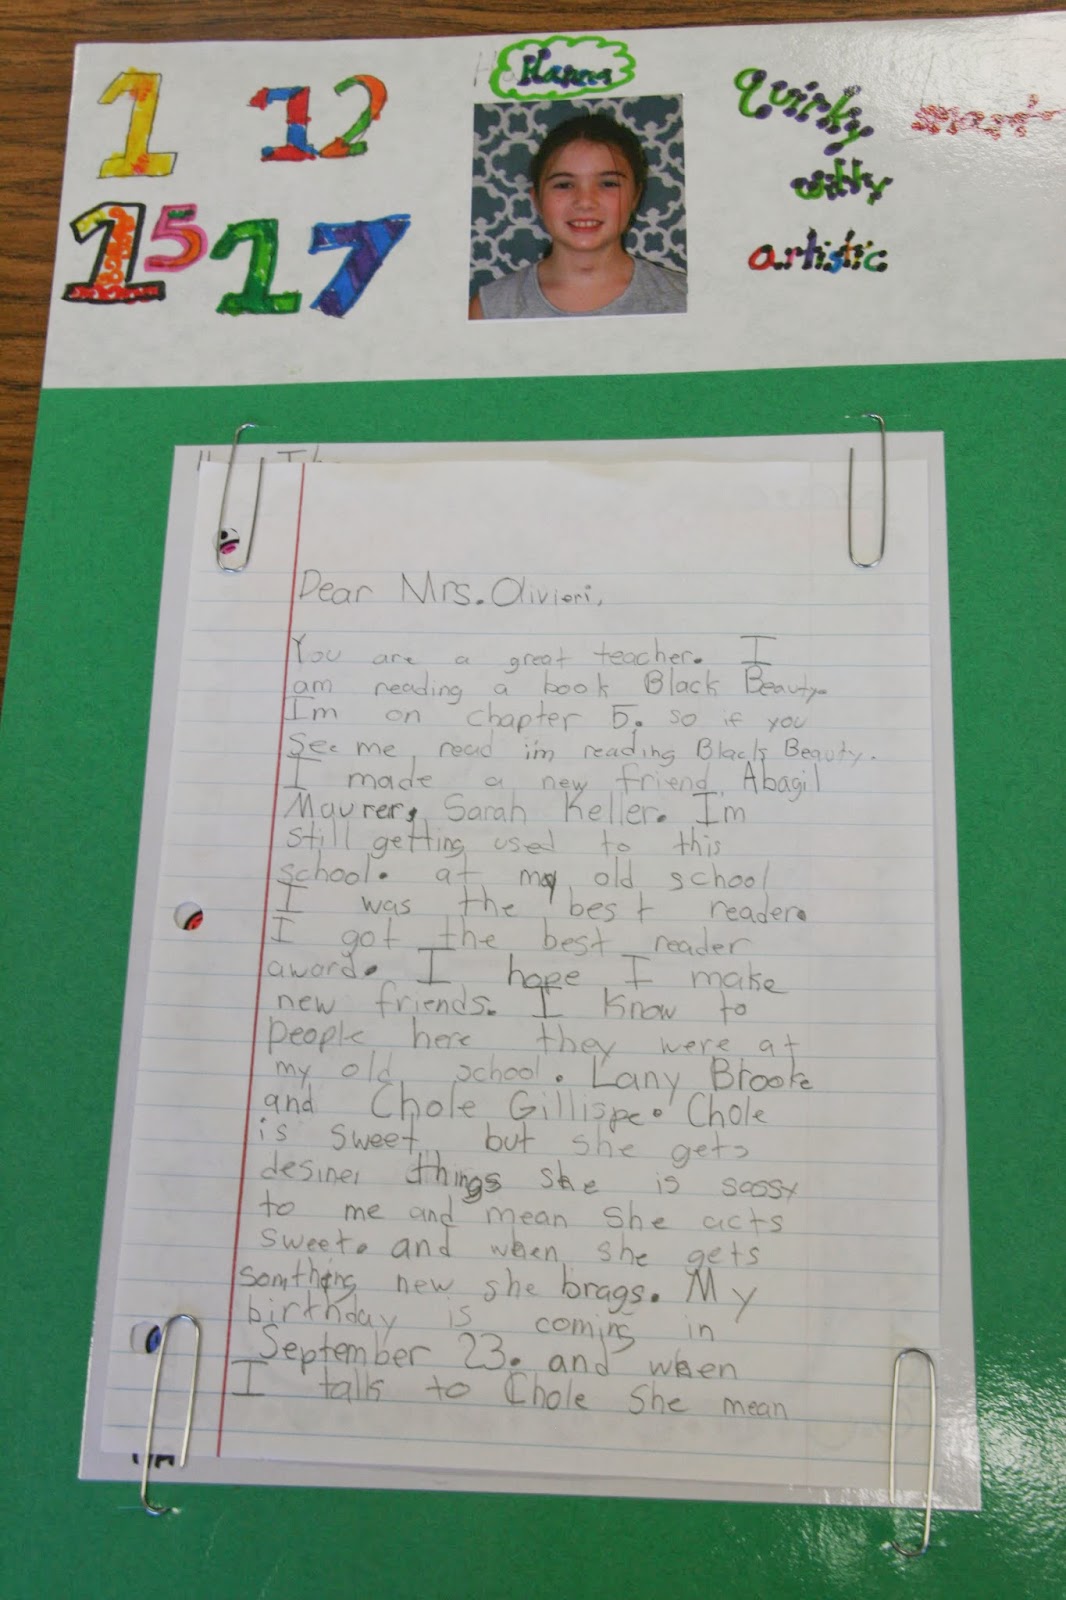 1 12 Hanna Quirky smart
witty
15 17 artistic
Dear Mrs. Olivieri,
You are a great teacher. I
am reading a book Black Beauty.
Im on chapter 5. so if you
see me read i'm reading Black Beauty.
I made a new friend, Abagil
Maurer, Sarah Keller. Im
still getting used to this
school. at my old school
I was the best reader.
I got the best reader
award. I hope I make
new friends. I know to
people here they were at
my old school. Lany Brooke
and Chole Gillispe. Chole
is sweet but she gets
desiner things she is sassy
to me and mean she acts
sweet. and when she gets
somthing new she brags. My
birthday is coming in
September 23. and when
I talk to Chole she mean